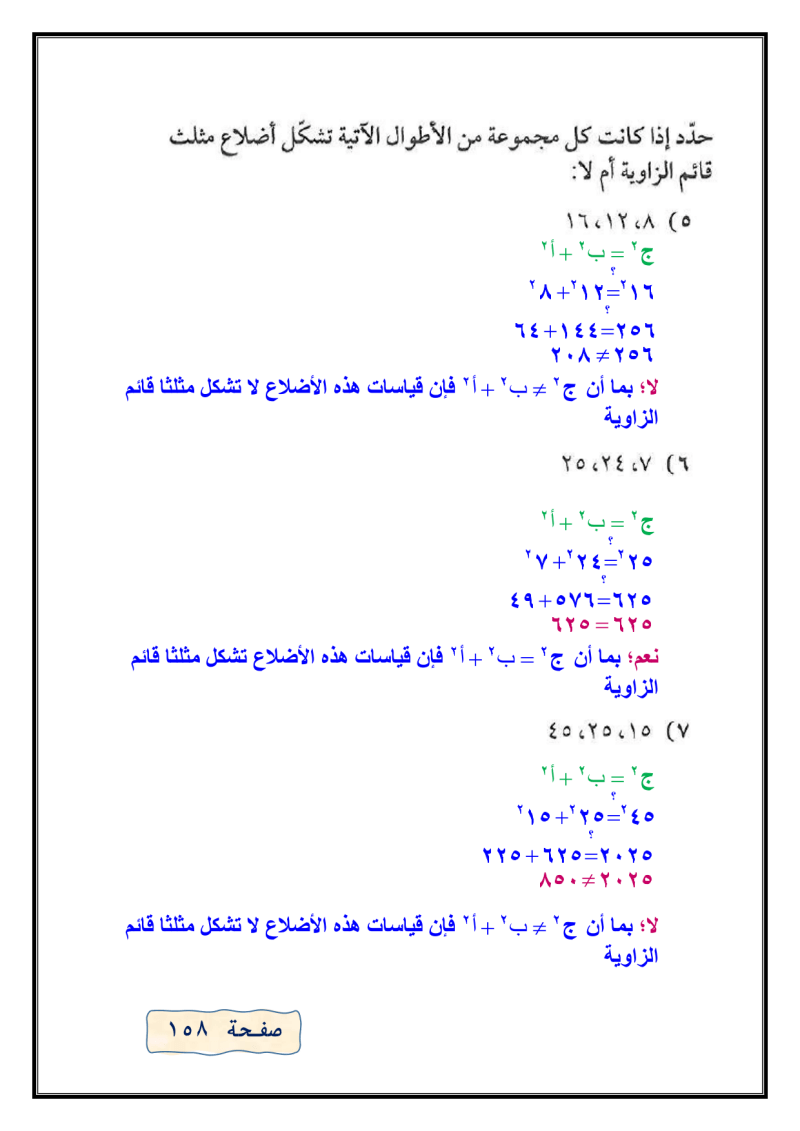 حدّد إذا كانت كل مجموعة من الأطوال الآتية تشكّل أضلاع مثلث
قائم الزاوية أم لا:
٥) ٨، ١٢، ١٦
ج² = ب² + أ²
؟
١٦² = ١٢² + ٨²
؟
٢٥٦ = ١٤٤ + ٦٤
٢٥٦ ≠ ٢٠٨
لا؛ بما أن ج² ≠ ب² + أ² فإن قياسات هذه الأضلاع لا تشكل مثلثا قائم
الزاوية
٦) ٧، ٢٤، ٢٥
ج² = ب² + أ²
؟
٢٥² = ٢٤² + ٧²
؟
٦٢٥ = ٥٧٦ + ٤٩
٦٢٥ = ٦٢٥
نعم؛ بما أن ج² = ب² + أ² فإن قياسات هذه الأضلاع تشكل مثلثا قائم
الزاوية
٧) ١٥، ٢٥، ٤٥
ج² = ب² + أ²
؟
٤٥² = ٢٥² + ١٥²
؟
٢٠٢٥ = ٦٢٥ + ٢٢٥
٢٠٢٥ ≠ ٨٥٠
لا؛ بما أن ج² ≠ ب² + أ² فإن قياسات هذه الأضلاع لا تشكل مثلثا قائم
الزاوية
صفحة ١٥٨